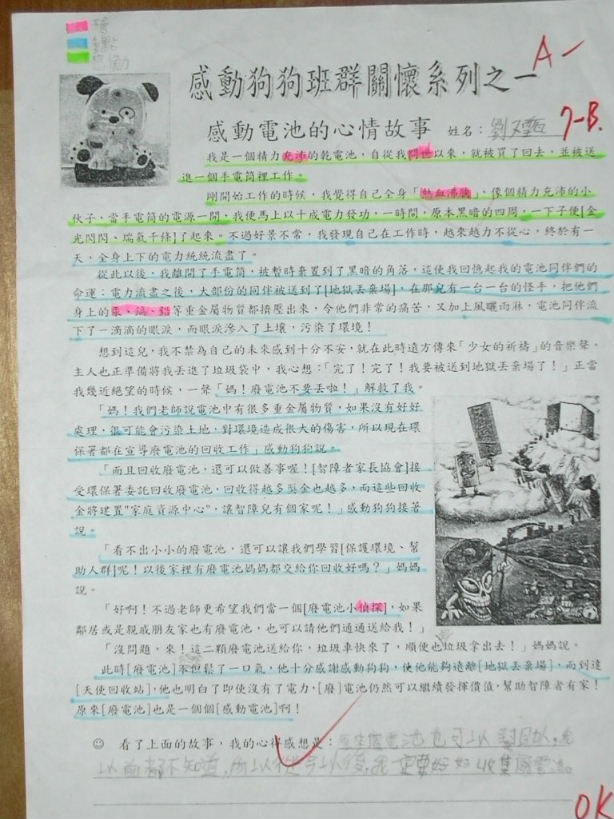 重點
感動
A-
感動狗狗班群關懷系列之一
感動電池的心情故事 姓名：劉
7-B.
我是一個精力充沛的乾電池，自從我問世以來，就被買了回去，並被送
進一個手電筒裡工作。
剛開始工作的時候，我覺得自己全身「熱血沸騰」，像個精力充沛的小
伙子，當手電筒的電源一開，我便馬上以十成電力發功，一時間，原本黑暗的四周，一下子便[金
光閃閃、瑞氣千條]了起來。不過好景不常，我發現自己在工作時，越來越力不從心，終於有一
天，全身上下的電力統統流盡了。
從此以後，我離開了手電筒，被暫時棄置到了黑暗的角落，這使我回憶起我的電池同伴們的
命運：電力流盡之後，大部份的同伴被送到了[地獄丟棄場]，在那兒有一台一台的怪手，把他們
身上的汞、鎘、鉛等重金屬物質都擠壓出來，令他們非常的痛苦，又加上風曬雨淋，電池同伴流
下了一滴滴的眼淚，而眼淚滲入了土壤，污染了環境！
想到這兒，我不禁為自己的未來感到十分不安，就在此時遠方傳來「少女的祈禱」的音樂聲，
主人也正準備將我丟進了垃圾袋中，我心想：「完了！完了！我要被送到地獄丟棄場了！」正當
我幾近絕望的時候，一聲「媽！廢電池不要丟啦！」解救了我。
「媽！我們老師說電池中有很多重金屬物質，如果沒有好好
處理，很可能會污染土地，對環境造成很大的傷害，所以現在環
保署都在宣導廢電池的回收工作」感動狗狗說。
「而且回收廢電池，還可以做善事喔！[智障者家長協會]接
受環保署委託回收廢電池，回收得越多獎金也越多，而這些回收
金將建置"家庭資源中心"，讓智障兒有個家呢！」感動狗狗接著
說。
「看不出小小的廢電池，還可以讓我們學習[保護環境、幫
助人群]呢！以後家裡有廢電池媽媽都交給你回收好嗎？」媽媽
說。
「好啊！不過老師更希望我們當一個[廢電池小偵探]，如果
鄰居或是親戚朋友家也有廢電池，也可以請他們通通送給我！」
「沒問題，來！這二顆廢電池送給你，垃圾車快來了，順便也垃圾拿出去！」媽媽說。
此時[廢電池]不但鬆了一口氣，他十分感謝感動狗狗，使他能夠遠離[地獄丟棄場]，而到達
[天使回收站]，他也明白了即使沒有了電力，[廢]電池仍然可以繼續發揮價值，幫助智障者有家！
原來[廢電池]也是一個個[感動電池]啊！
☺ 看了上面的故事，我的心得感想是：原來廢電池也可以幫助人，我
以前都不知道，所以從今以後，我一定要好好收集廢電池
OK